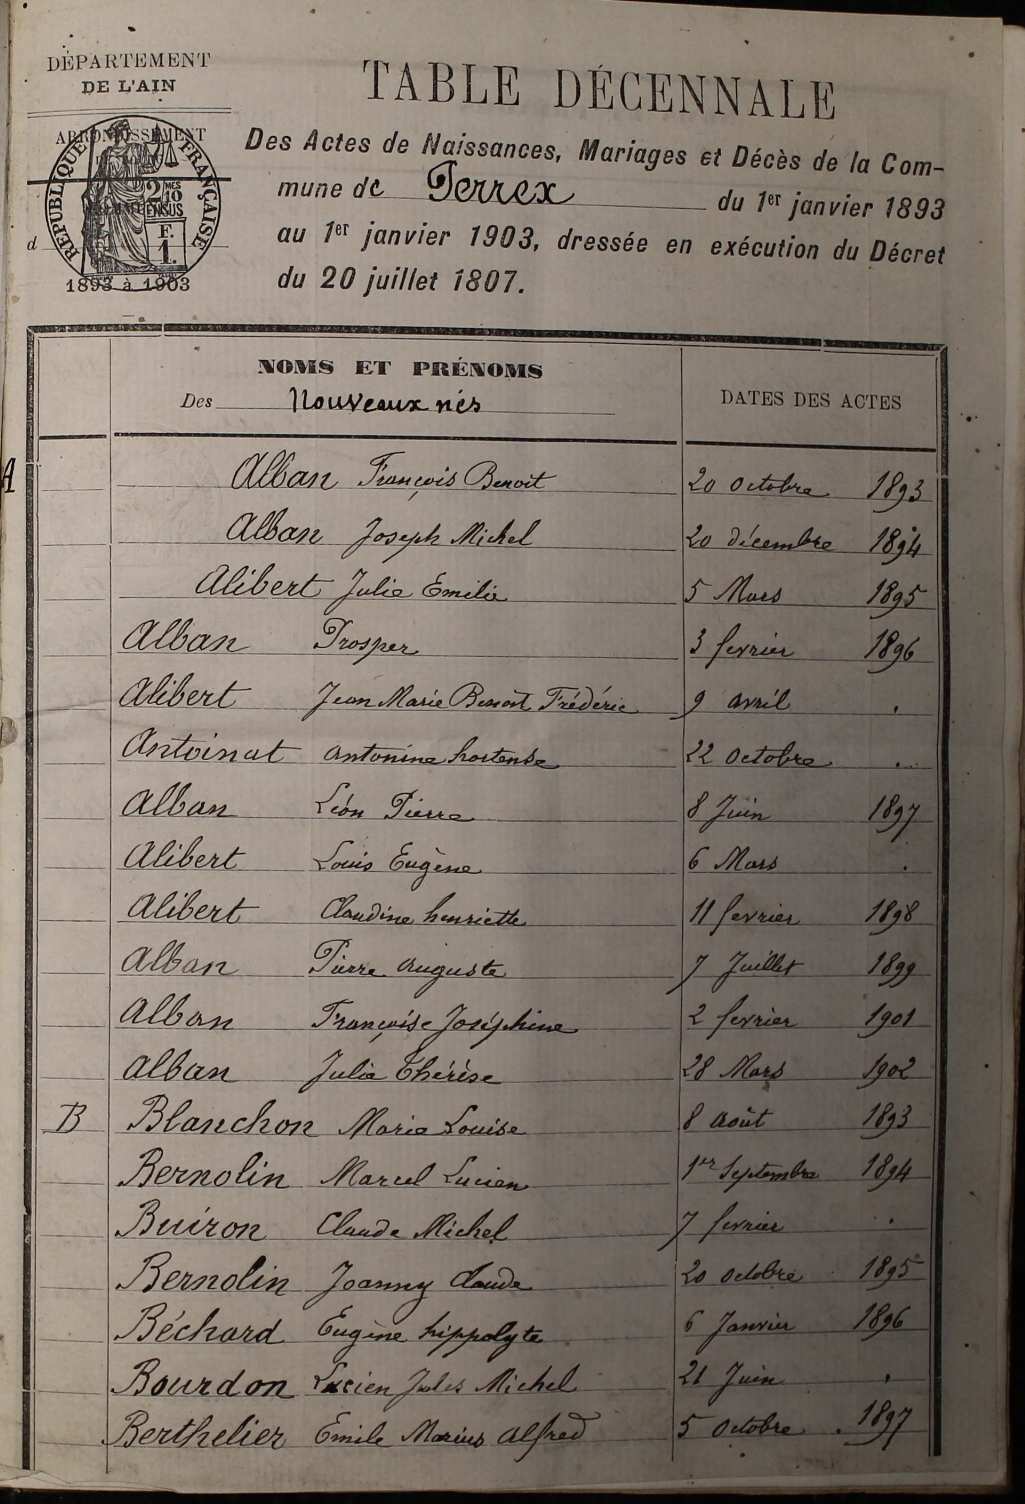 DÉPARTEMENT
DE L'AIN
ARRONDISSEMENT
RÉPUBLIQUE FRANÇAISE
2 MES 10
EN SUS
F.
1.
d
1893 à 1903
TABLE DÉCENNALE
Des Actes de Naissances, Mariages et Décès de la Com-
mune de Perrex du 1er janvier 1893
au 1er janvier 1903, dressée en exécution du Décret
du 20 juillet 1807.
NOMS ET PRÉNOMS
Des Nouveaux nés
DATES DES ACTES
A
Alban François Benoit 20 octobre 1893
Alban Joseph Michel 20 décembre 1894
Alibert Julie Emilie 5 Mars 1895
Alban Prosper 3 fevrier 1896
Alibert Jean Marie Benoit Frédéric 9 avril .
Antoinat antonine hortense 22 octobre .
Alban Léon Pierre 8 Juin 1897
Alibert Louis Eugène 6 Mars .
Alibert Claudine henriette 11 fevrier 1898
Alban Pierre auguste 7 Juillet 1899
Alban Françoise Joséphine 2 fevrier 1901
Alban Julie Thérèse 28 Mars 1902
B Blanchon Marie Louise 8 août 1893
Bernolin Marcel Lucien 1er Septembre 1894
Buiron Claude Michel 7 fevrier .
Bernolin Joanny Claude 20 octobre 1895
Béchard Eugène hippolyte 6 Janvier 1896
Bourdon Lucien Jules Michel 21 Juin .
Berthelier Emile Marius alfred 5 octobre 1897